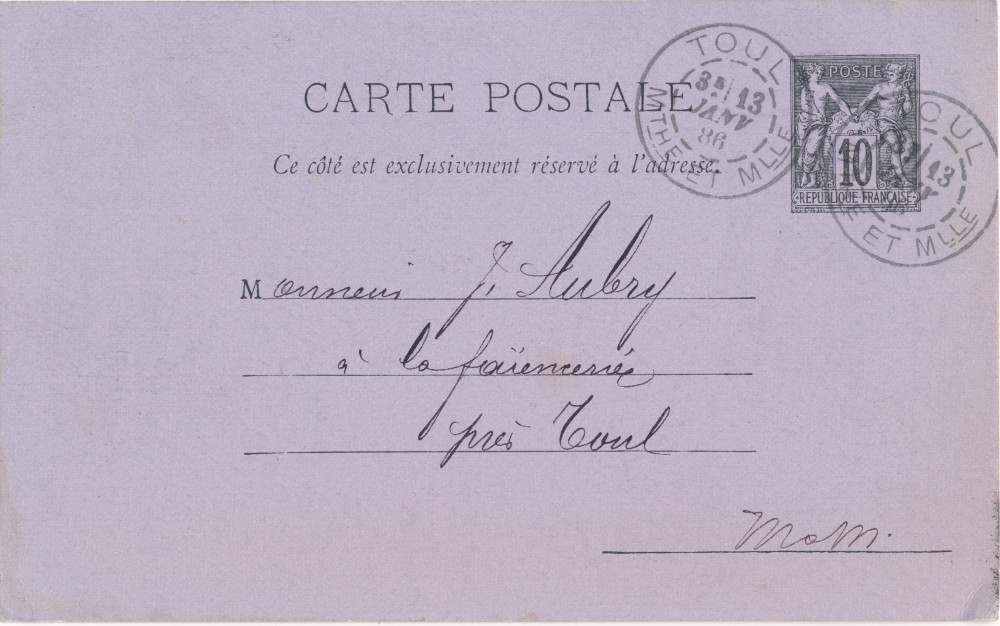 CARTE POSTALE
Ce côté est exclusivement réservé à l'adresse.
TOUL
3E 13
JANV
86
MTHE ET MLLE
POSTE
10
REPUBLIQUE FRANÇAISE
TOUL
13
E ET MLLE
Monsieur J. Aubry
à la faïencerie
près Toul
MoM.